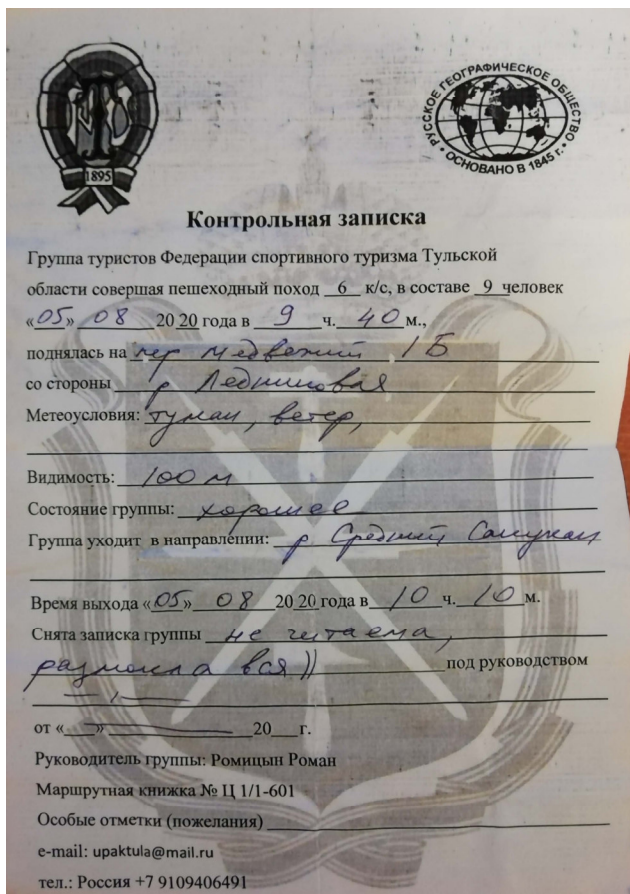 1895
РУССКОЕ ГЕОГРАФИЧЕСКОЕ ОБЩЕСТВО
• ОСНОВАНО В 1845 г. •
Контрольная записка
Группа туристов Федерации спортивного туризма Тульской
области совершая пешеходный поход 6 к/с, в составе 9 человек
«05» 08 20 20 года в 9 ч. 40 м.,
поднялась на пер Медвежий 1Б
со стороны р Ледниковая
Метеоусловия: туман, ветер,
Видимость: 100 м
Состояние группы: хорошее
Группа уходит в направлении: р Средний Сакукан
Время выхода «05» 08 20 20 года в 10 ч. 10 м.
Снята записка группы не читаема,
размокла вся )) под руководством
от «__» 20__ г.
Руководитель группы: Ромицын Роман
Маршрутная книжка № Ц 1/1-601
Особые отметки (пожелания)
e-mail: upaktula@mail.ru
тел.: Россия +7 9109406491